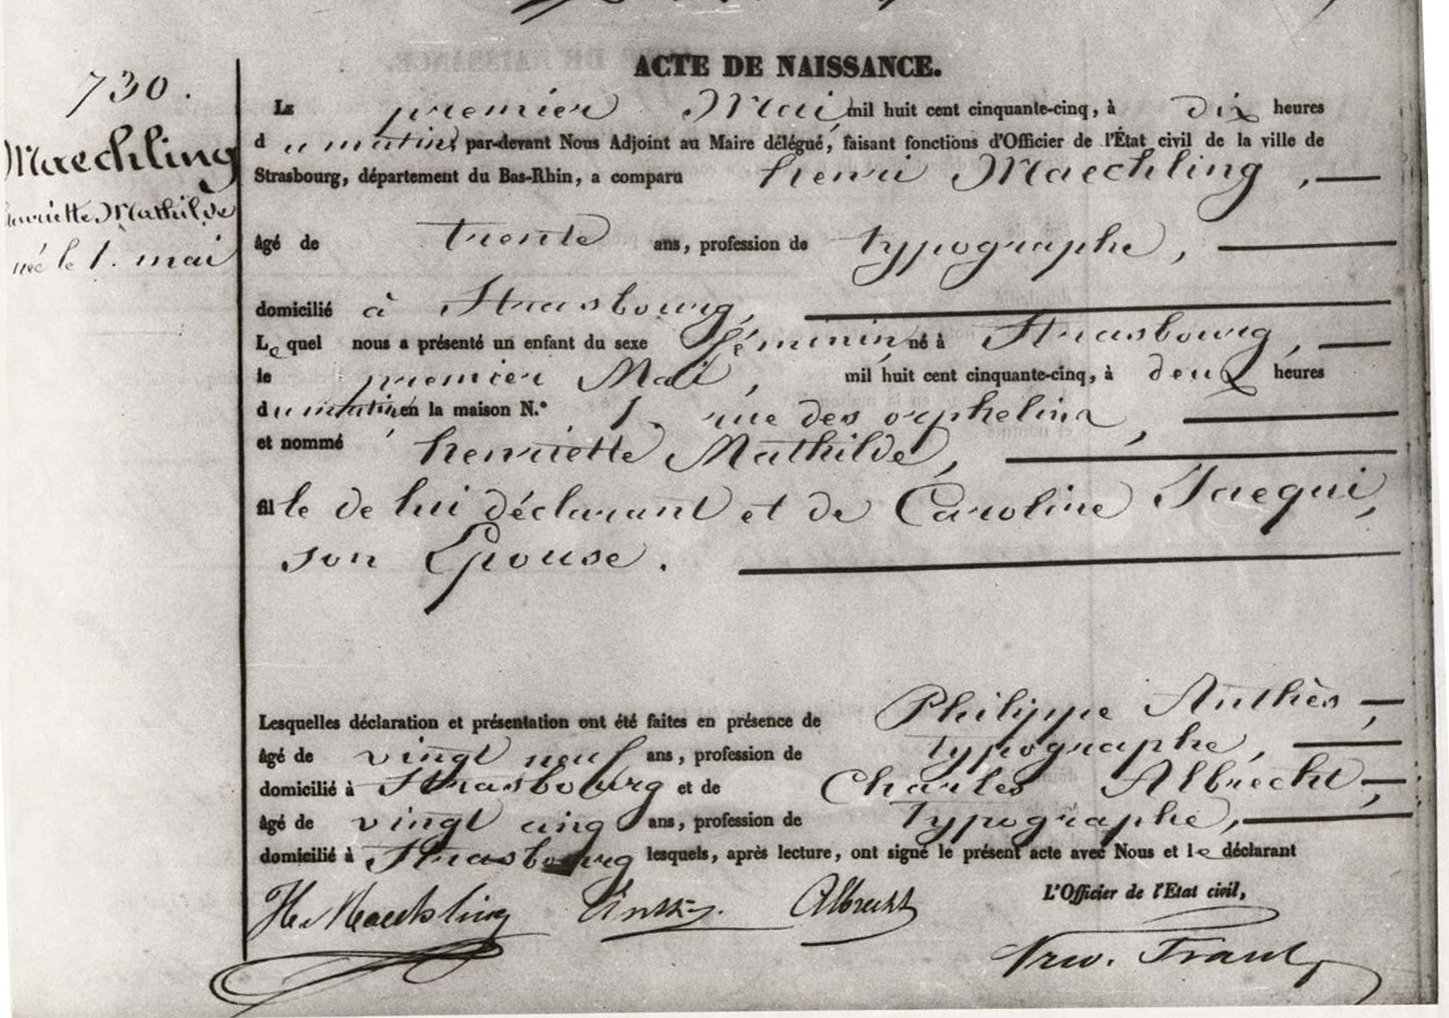 730.
Maechling
henriette Mathilde
née le 1. mai
ACTE DE NAISSANCE.
Le premier Mai mil huit cent cinquante-cinq, à dix heures
du matin, par-devant Nous Adjoint au Maire délégué, faisant fonctions d'Officier de l'État civil de la ville de
Strasbourg, département du Bas-Rhin, a comparu henri Maechling,
âgé de trente ans, profession de typographe,
domicilié à Strasbourg,
Lequel nous a présenté un enfant du sexe féminin, né à Strasbourg,
le premier Mai, mil huit cent cinquante-cinq, à deux heures
du matin, en la maison N.° 1. rue des orphelins,
et nommé henriette Mathilde,
fille de lui déclarant et de Caroline Jaequi,
son Epouse.
Lesquelles déclaration et présentation ont été faites en présence de Philippe Anthès,
âgé de vingt neuf ans, profession de typographe,
domicilié à Strasbourg et de Charles Albrecht,
âgé de vingt cinq ans, profession de typographe,
domicilié à Strasbourg lesquels, après lecture, ont signé le présent acte avec Nous et le déclarant
L'Officier de l'Etat civil,
H. Maechling Albrecht